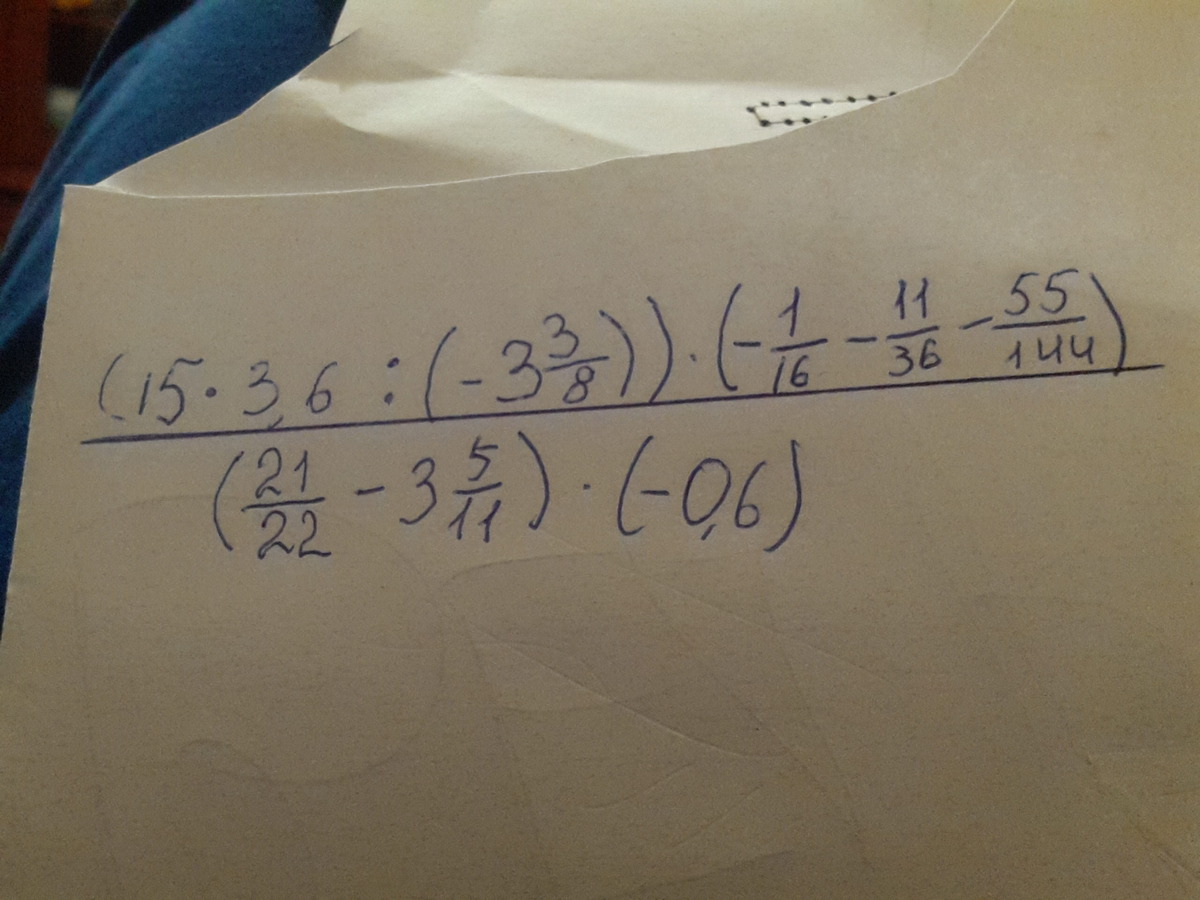 (15 · 3,6 : (-3 3/8)) · (-1/16 - 11/36 - 55/144)
(21/22 - 3 5/11) · (-0,6)